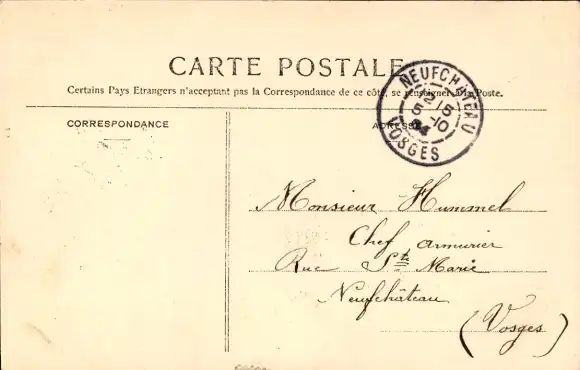 CARTE POSTALE
Certains Pays Etrangers n'acceptant pas la Correspondance de ce côté, se renseigner à la Poste.
CORRESPONDANCE
ADRESSE
NEUFCHATEAU
VOSGES
Monsieur Hummel
Chef armurier
Rue Ste Marie
Neufchâteau
(Vosges)